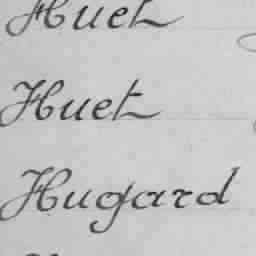 Huet
Huet
Hugard